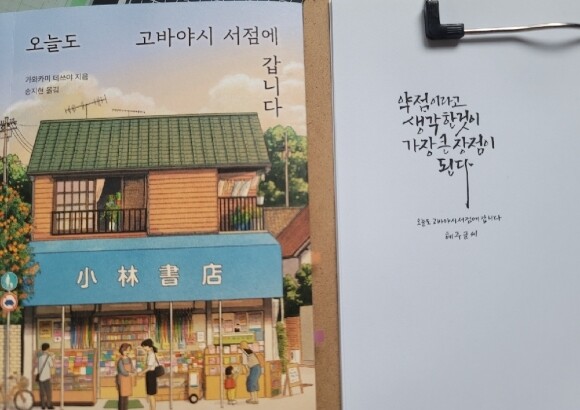 오늘도 고바야시 서점에
갑니다
가와카미 데쓰야 지음
송지현 옮김
小林書店
약점이라고
생각한것이
가장 큰 장점이
된다
오늘도 고바야시 서점에 갑니다
해주글씨